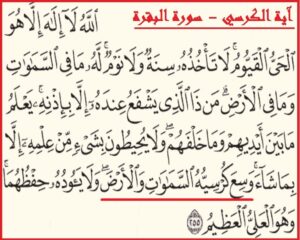 آية الكرسي - سورة البقرة
ٱللَّهُ لَآ إِلَـٰهَ إِلَّا هُوَ
ٱلْحَىُّ ٱلْقَيُّومُ ۚ لَا تَأْخُذُهُۥ سِنَةٌ وَلَا نَوْمٌ ۚ لَّهُۥ مَا فِى ٱلسَّمَـٰوَٰتِ
وَمَا فِى ٱلْأَرْضِ ۗ مَن ذَا ٱلَّذِى يَشْفَعُ عِندَهُۥٓ إِلَّا بِإِذْنِهِۦ ۚ يَعْلَمُ
مَا بَيْنَ أَيْدِيهِمْ وَمَا خَلْفَهُمْ ۖ وَلَا يُحِيطُونَ بِشَىْءٍ مِّنْ عِلْمِهِۦٓ إِلَّا
بِمَا شَآءَ ۚ وَسِعَ كُرْسِيُّهُ ٱلسَّمَـٰوَٰتِ وَٱلْأَرْضَ ۖ وَلَا يَـُٔودُهُۥ حِفْظُهُمَا ۚ
وَهُوَ ٱلْعَلِىُّ ٱلْعَظِيمُ ٢٥٥